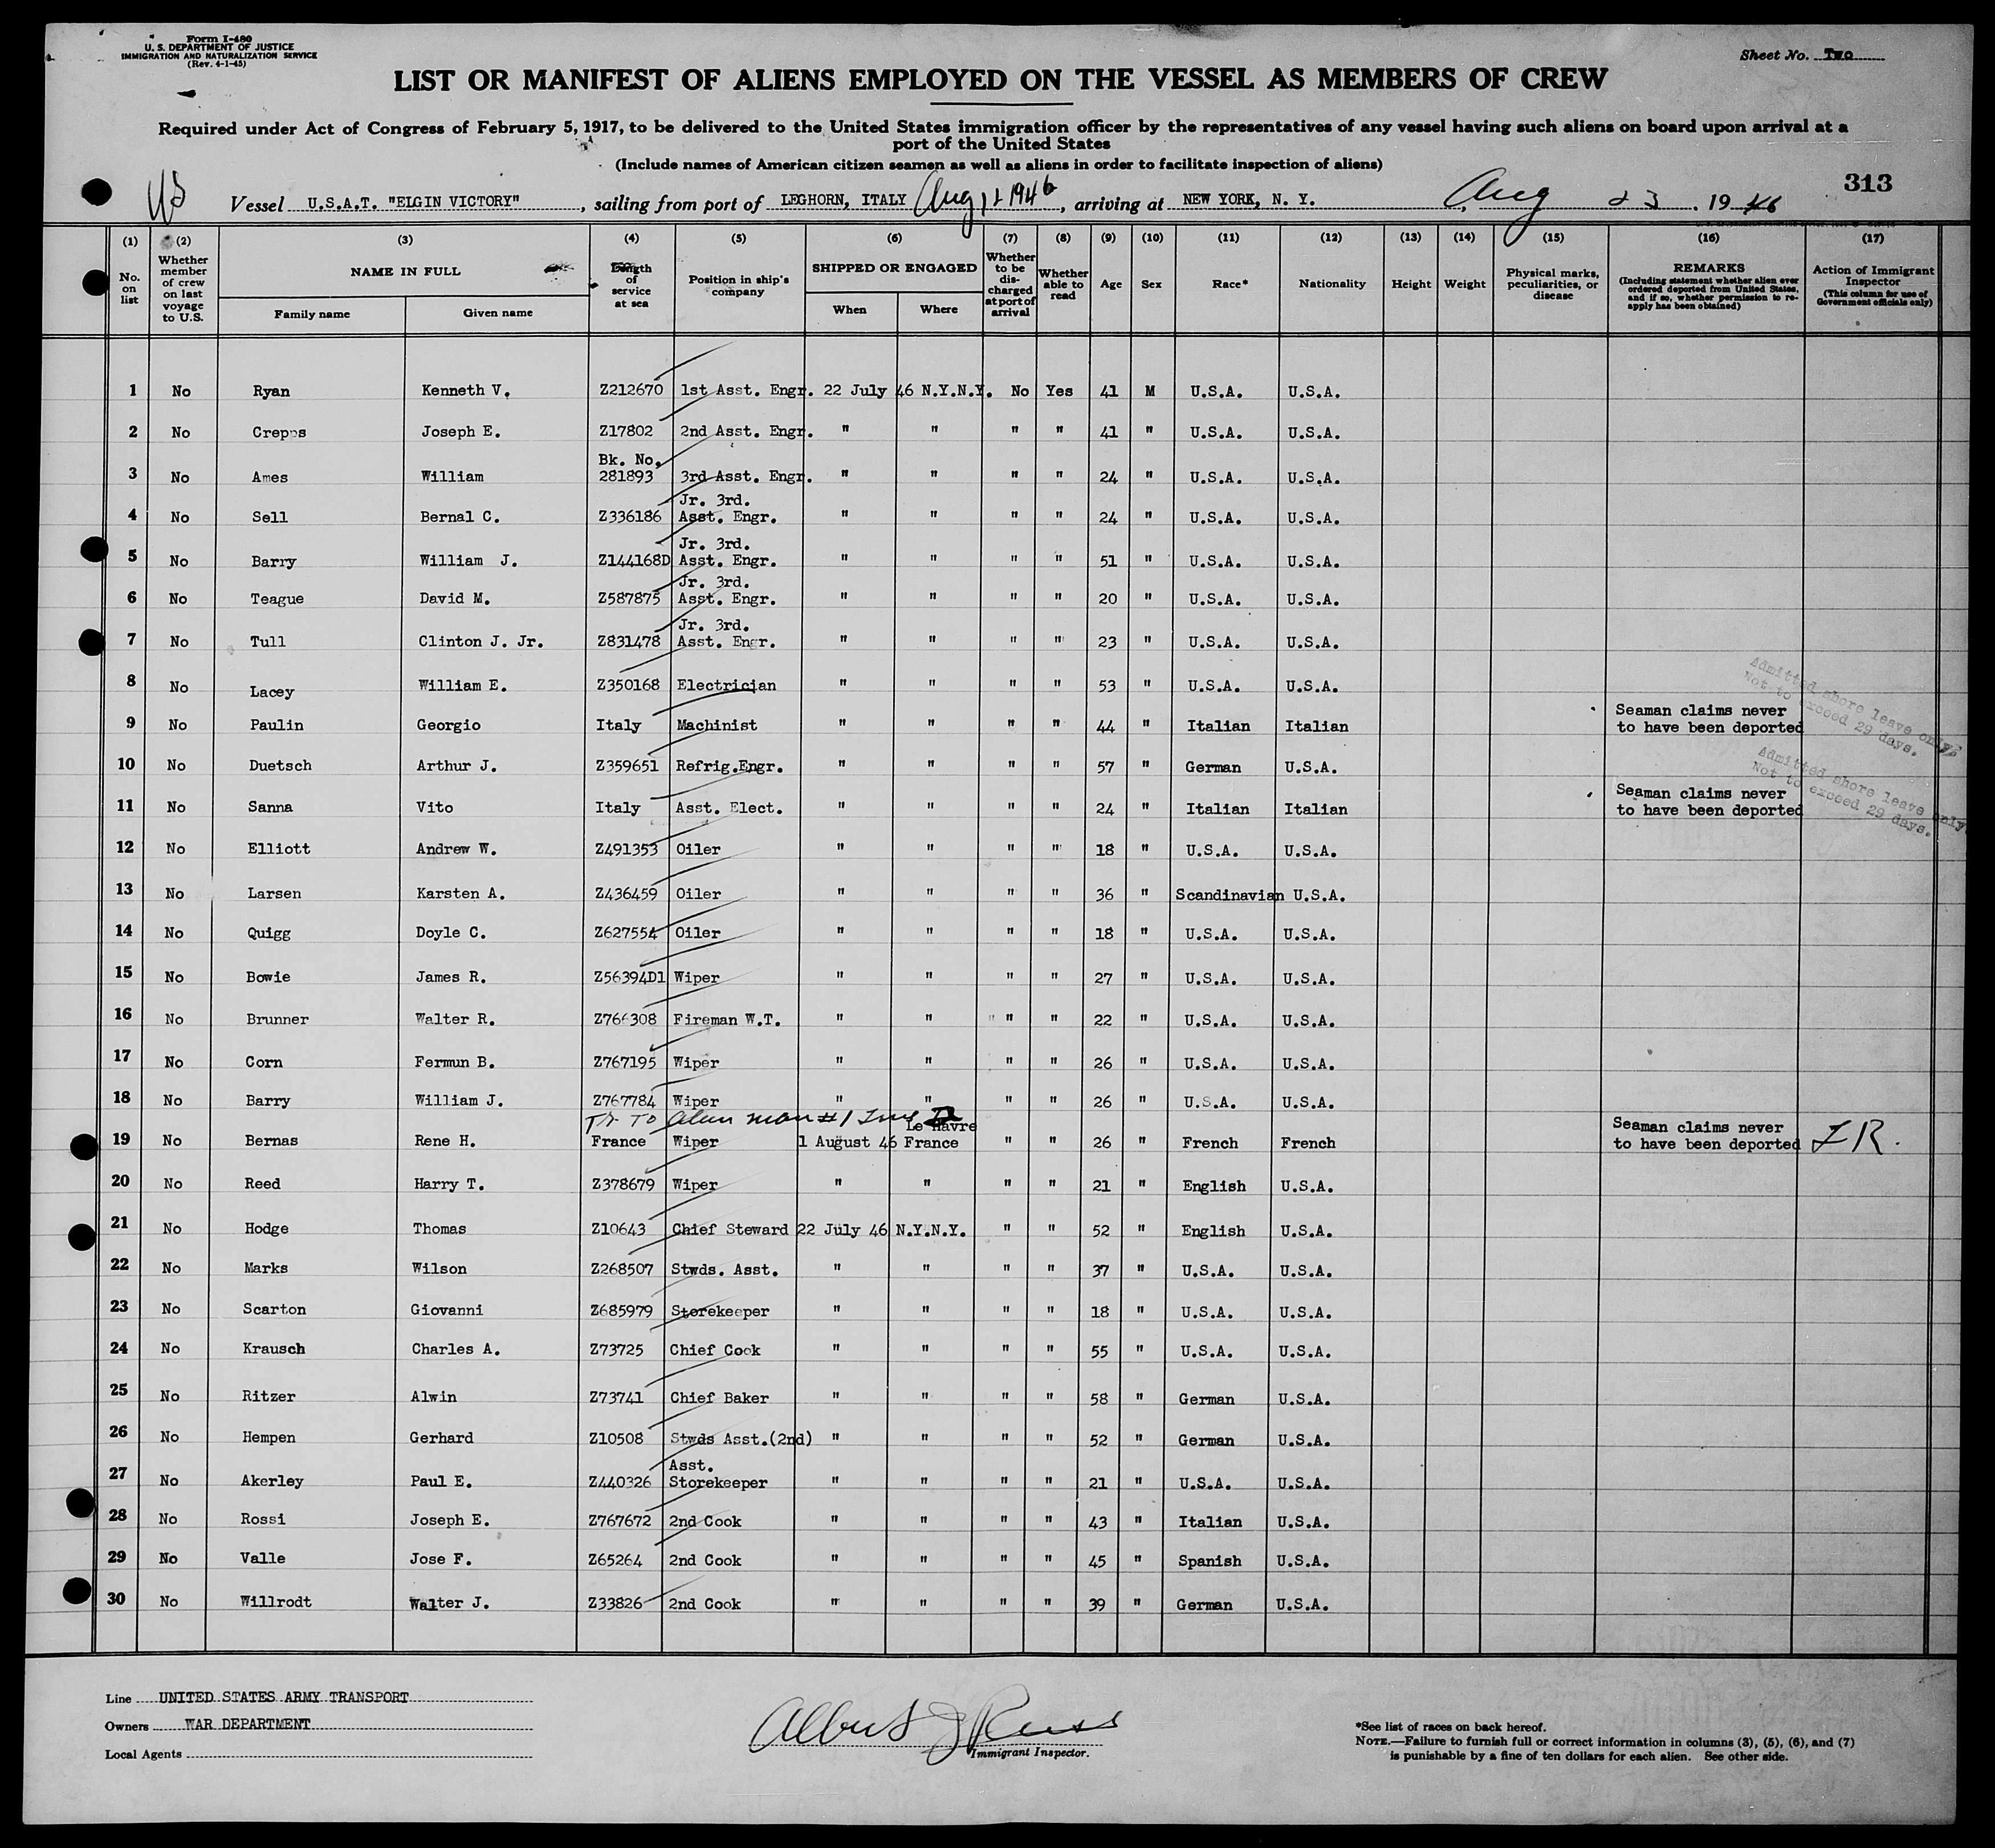 Form I-480
U. S. DEPARTMENT OF JUSTICE
IMMIGRATION AND NATURALIZATION SERVICE
(Rev. 4-1-45)
Sheet No. Two
LIST OR MANIFEST OF ALIENS EMPLOYED ON THE VESSEL AS MEMBERS OF CREW
Required under Act of Congress of February 5, 1917, to be delivered to the United States immigration officer by the representatives of any vessel having such aliens on board upon arrival at a
port of the United States
(Include names of American citizen seamen as well as aliens in order to facilitate inspection of aliens)
313
US Vessel U.S.A.T. "ELGIN VICTORY", sailing from port of LEGHORN, ITALY Aug 12 1946, arriving at NEW YORK, N. Y. Aug 23, 1946
(1) (2) (3) (4) (5) (6) (7) (8) (9) (10) (11) (12) (13) (14) (15) (16) (17)
No. on list
Whether member of crew on last voyage to U.S.
NAME IN FULL
Family name Given name
Length of service at sea
Position in ship's company
SHIPPED OR ENGAGED
When Where
Whether to be discharged at port of arrival
Whether able to read
Age Sex Race* Nationality Height Weight
Physical marks, peculiarities, or disease
REMARKS
(Including statement whether alien ever ordered deported from United States, and if so, whether permission to reapply has been obtained)
Action of Immigrant Inspector
(This column for use of Government officials only)
1 No Ryan Kenneth V. Z212670 1st Asst. Engr. 22 July 46 N.Y.N.Y. No Yes 41 M U.S.A. U.S.A.
2 No Crepps Joseph E. Z17802 2nd Asst. Engr. " " " " 41 " U.S.A. U.S.A.
3 No Ames William Bk. No. 281893 3rd Asst. Engr. " " " " 24 " U.S.A. U.S.A.
4 No Sell Bernal C. Z336186 Jr. 3rd. Asst. Engr. " " " " 24 " U.S.A. U.S.A.
5 No Barry William J. Z144168D Jr. 3rd. Asst. Engr. " " " " 51 " U.S.A. U.S.A.
6 No Teague David M. Z587875 Jr. 3rd. Asst. Engr. " " " " 20 " U.S.A. U.S.A.
7 No Tull Clinton J. Jr. Z831478 Jr. 3rd. Asst. Engr. " " " " 23 " U.S.A. U.S.A.
8 No Lacey William E. Z350168 Electrician " " " " 53 " U.S.A. U.S.A.
9 No Paulin Georgio Italy Machinist " " " " 44 " Italian Italian Seaman claims never to have been deported Admitted shore leave only Not to exceed 29 days.
10 No Duetsch Arthur J. Z359651 Refrig.Engr. " " " " 57 " German U.S.A.
11 No Sanna Vito Italy Asst. Elect. " " " " 24 " Italian Italian Seaman claims never to have been deported Admitted shore leave only Not to exceed 29 days.
12 No Elliott Andrew W. Z491353 Oiler " " " " 18 " U.S.A. U.S.A.
13 No Larsen Karsten A. Z436459 Oiler " " " " 36 " Scandinavian U.S.A.
14 No Quigg Doyle C. Z627554 Oiler " " " " 18 " U.S.A. U.S.A.
15 No Bowie James R. Z56394D1 Wiper " " " " 27 " U.S.A. U.S.A.
16 No Brunner Walter R. Z766308 Fireman W.T. " " " " 22 " U.S.A. U.S.A.
17 No Corn Fermun B. Z767195 Wiper " " " " 26 " U.S.A. U.S.A.
18 No Barry William J. Z767784 Wiper " " " " 26 " U.S.A. U.S.A.
Tr to Alien man #1 Line
19 No Bernas Rene H. France Wiper 1 August 46 Le Havre France " " 26 " French French Seaman claims never to have been deported IR.
20 No Reed Harry T. Z378679 Wiper " " " " 21 " English U.S.A.
21 No Hodge Thomas Z10643 Chief Steward 22 July 46 N.Y.N.Y. " " 52 " English U.S.A.
22 No Marks Wilson Z268507 Stwds. Asst. " " " " 37 " U.S.A. U.S.A.
23 No Scarton Giovanni Z685979 Storekeeper " " " " 18 " U.S.A. U.S.A.
24 No Krausch Charles A. Z73725 Chief Cook " " " " 55 " U.S.A. U.S.A.
25 No Ritzer Alwin Z73741 Chief Baker " " " " 58 " German U.S.A.
26 No Hempen Gerhard Z10508 Stwds Asst.(2nd) " " " " 52 " German U.S.A.
27 No Akerley Paul E. Z440326 Asst. Storekeeper " " " " 21 " U.S.A. U.S.A.
28 No Rossi Joseph E. Z767672 2nd Cook " " " " 43 " Italian U.S.A.
29 No Valle Jose F. Z65264 2nd Cook " " " " 45 " Spanish U.S.A.
30 No Willrodt Walter J. Z33826 2nd Cook " " " " 39 " German U.S.A.
Line UNITED STATES ARMY TRANSPORT
Owners WAR DEPARTMENT
Local Agents
Albert J Russ
Immigrant Inspector.
*See list of races on back hereof.
NOTE.—Failure to furnish full or correct information in columns (3), (5), (6), and (7)
is punishable by a fine of ten dollars for each alien. See other side.